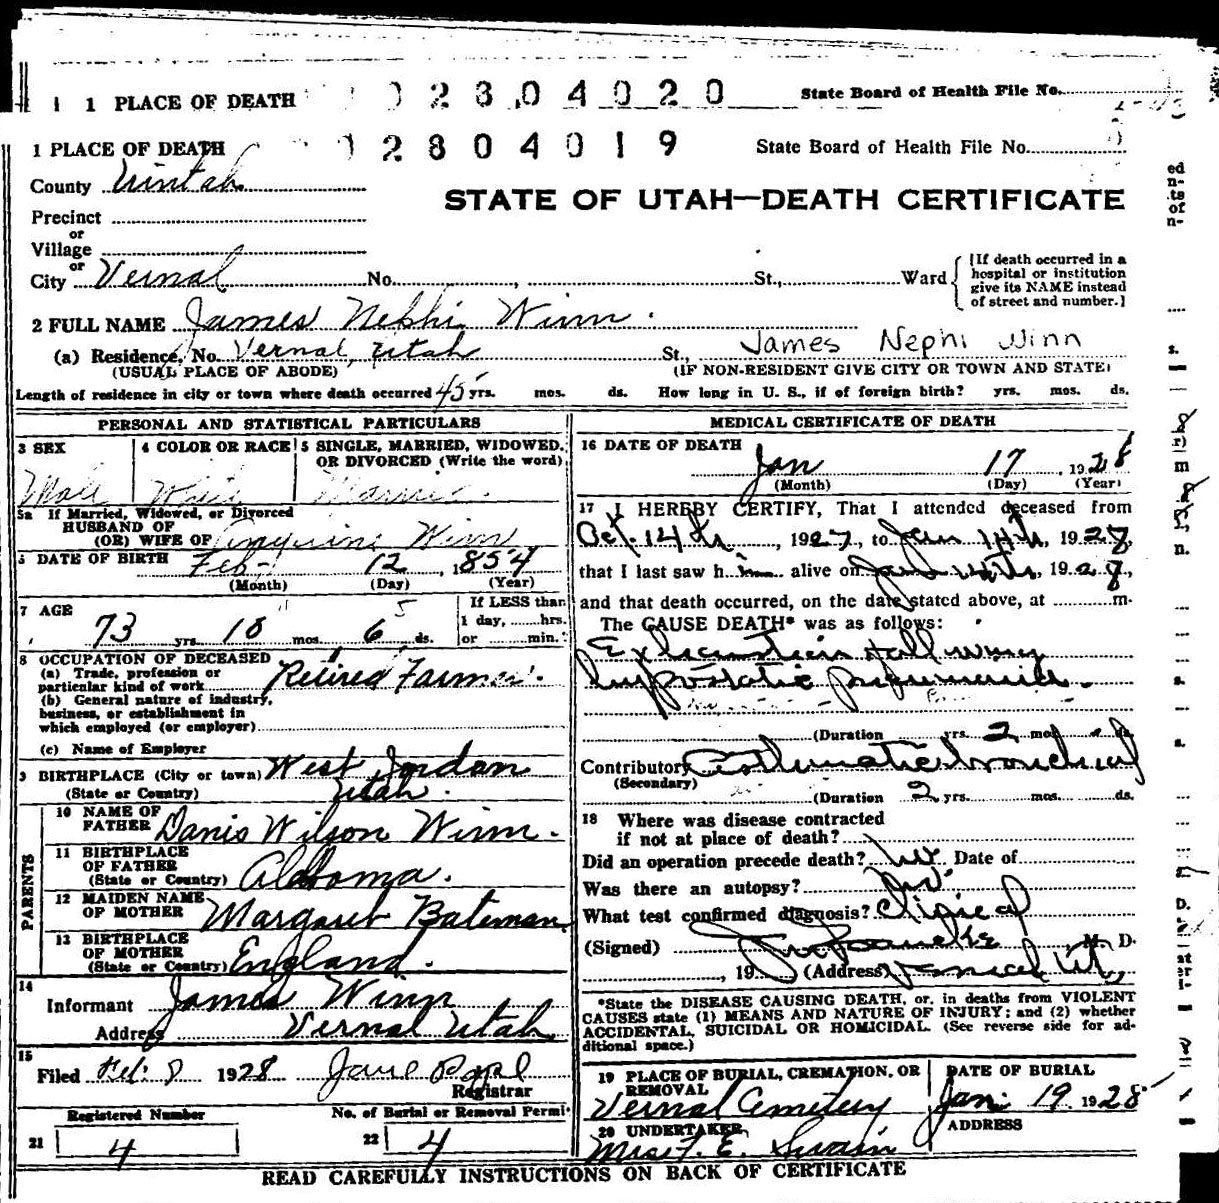 1 PLACE OF DEATH 02804020 State Board of Health File No.
1 PLACE OF DEATH 02804019 State Board of Health File No.
County Uintah
STATE OF UTAH—DEATH CERTIFICATE
Precinct
or
Village
or
City Vernal No. , St., Ward
[If death occurred in a hospital or institution give its NAME instead of street and number.]
2 FULL NAME James Nephi Winn.
(a) Residence, No. Vernal, Utah St., James Nephi Winn
(USUAL PLACE OF ABODE) (IF NON-RESIDENT GIVE CITY OR TOWN AND STATE)
Length of residence in city or town where death occurred 45 yrs. mos. ds. How long in U. S., if of foreign birth? yrs. mos. ds.
PERSONAL AND STATISTICAL PARTICULARS
3 SEX 4 COLOR OR RACE 5 SINGLE, MARRIED, WIDOWED, OR DIVORCED (Write the word)
Male White Married.
5a If Married, Widowed, or Divorced
HUSBAND OF
(OR) WIFE OF Winn
6 DATE OF BIRTH Feb- 12, 1854
(Month) (Day) (Year)
7 AGE If LESS than
1 day, hrs.
73 yrs. 10 mos. 6 5 ds. or min.
8 OCCUPATION OF DECEASED
(a) Trade, profession or
particular kind of work Retired Farmer.
(b) General nature of industry,
business, or establishment in
which employed (or employer)
(c) Name of Employer
9 BIRTHPLACE (City or town) West Jordan
(State or Country) Utah.
PARENTS
10 NAME OF
FATHER Danis Wilson Winn.
11 BIRTHPLACE
OF FATHER
(State or Country) Alabama.
12 MAIDEN NAME
OF MOTHER Margaret Bateman
13 BIRTHPLACE
OF MOTHER
(State or Country) England.
14
Informant James Winn
Address Vernal Utah
15
Filed Feb. 8 1928
Registrar
Registered Number No. of Burial or Removal Permit
21 4 22 4
MEDICAL CERTIFICATE OF DEATH
16 DATE OF DEATH
Jan 17, 1928
(Month) (Day) (Year)
17 I HEREBY CERTIFY, That I attended deceased from
Oct. 14th, 1927, to Jan 14th, 1928,
that I last saw him alive on Jan 14th, 1928,
and that death occurred, on the date stated above, at m.
The CAUSE DEATH* was as follows:
Exhaustion following
hypostatic pneumonia.
(Duration yrs. 2 mos. ds.
Contributory Asthmatic bronchial
(Secondary)
(Duration 2 yrs. mos. ds.
18 Where was disease contracted
if not at place of death?
Did an operation precede death? no Date of
Was there an autopsy? no.
What test confirmed diagnosis? Clinical
(Signed) , M. D.
, 19 (Address) Vernal Ut,
*State the DISEASE CAUSING DEATH, or, in deaths from VIOLENT
CAUSES state (1) MEANS AND NATURE OF INJURY; and (2) whether
ACCIDENTAL, SUICIDAL OR HOMICIDAL. (See reverse side for ad-
ditional space.)
19 PLACE OF BURIAL, CREMATION, OR REMOVAL DATE OF BURIAL
Vernal Cemetery Jan. 19 1928
20 UNDERTAKER, ADDRESS
Mrs. F. E. Swain
READ CAREFULLY INSTRUCTIONS ON BACK OF CERTIFICATE